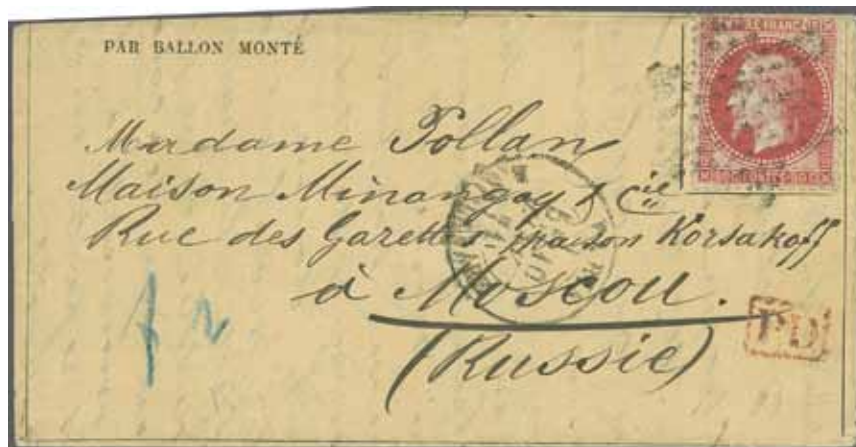 PAR BALLON MONTÉ
Madame Pollan
Maison Minangoy & Cie
Rue des Garettes maison Korsakoff
à Moscou.
(Russie)
PD